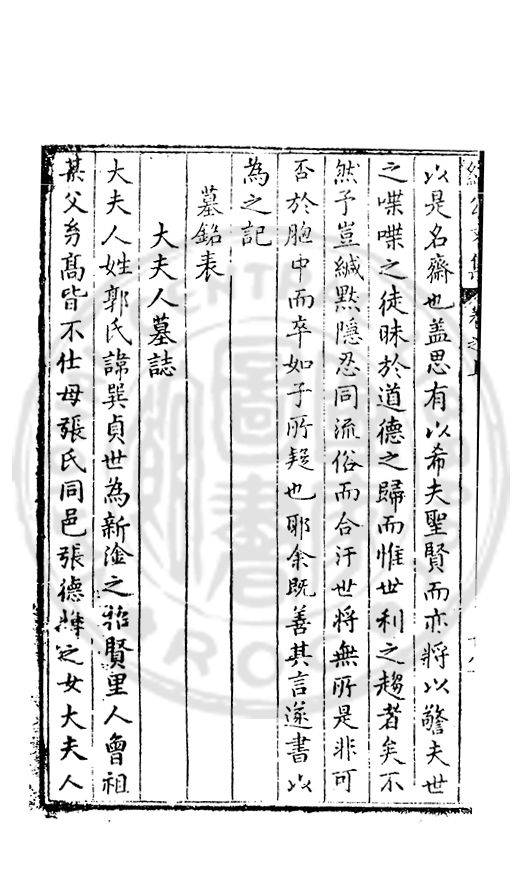 以是名齋也盖思有以希夫聖賢而亦將以警夫世
之喋喋之徒昧於道德之歸而惟世利之趨者矣不
然予豈緘黙隱忍同流俗而合汙世將無所是非可
否於胸中而卒如子所疑也耶余既善其言遂書以
為之記
墓銘表
大夫人墓誌
大夫人姓郭氏諱巽貞世為新淦之雅賢里人曾祖
某父髙皆不仕母張氏同邑張德之女大夫人